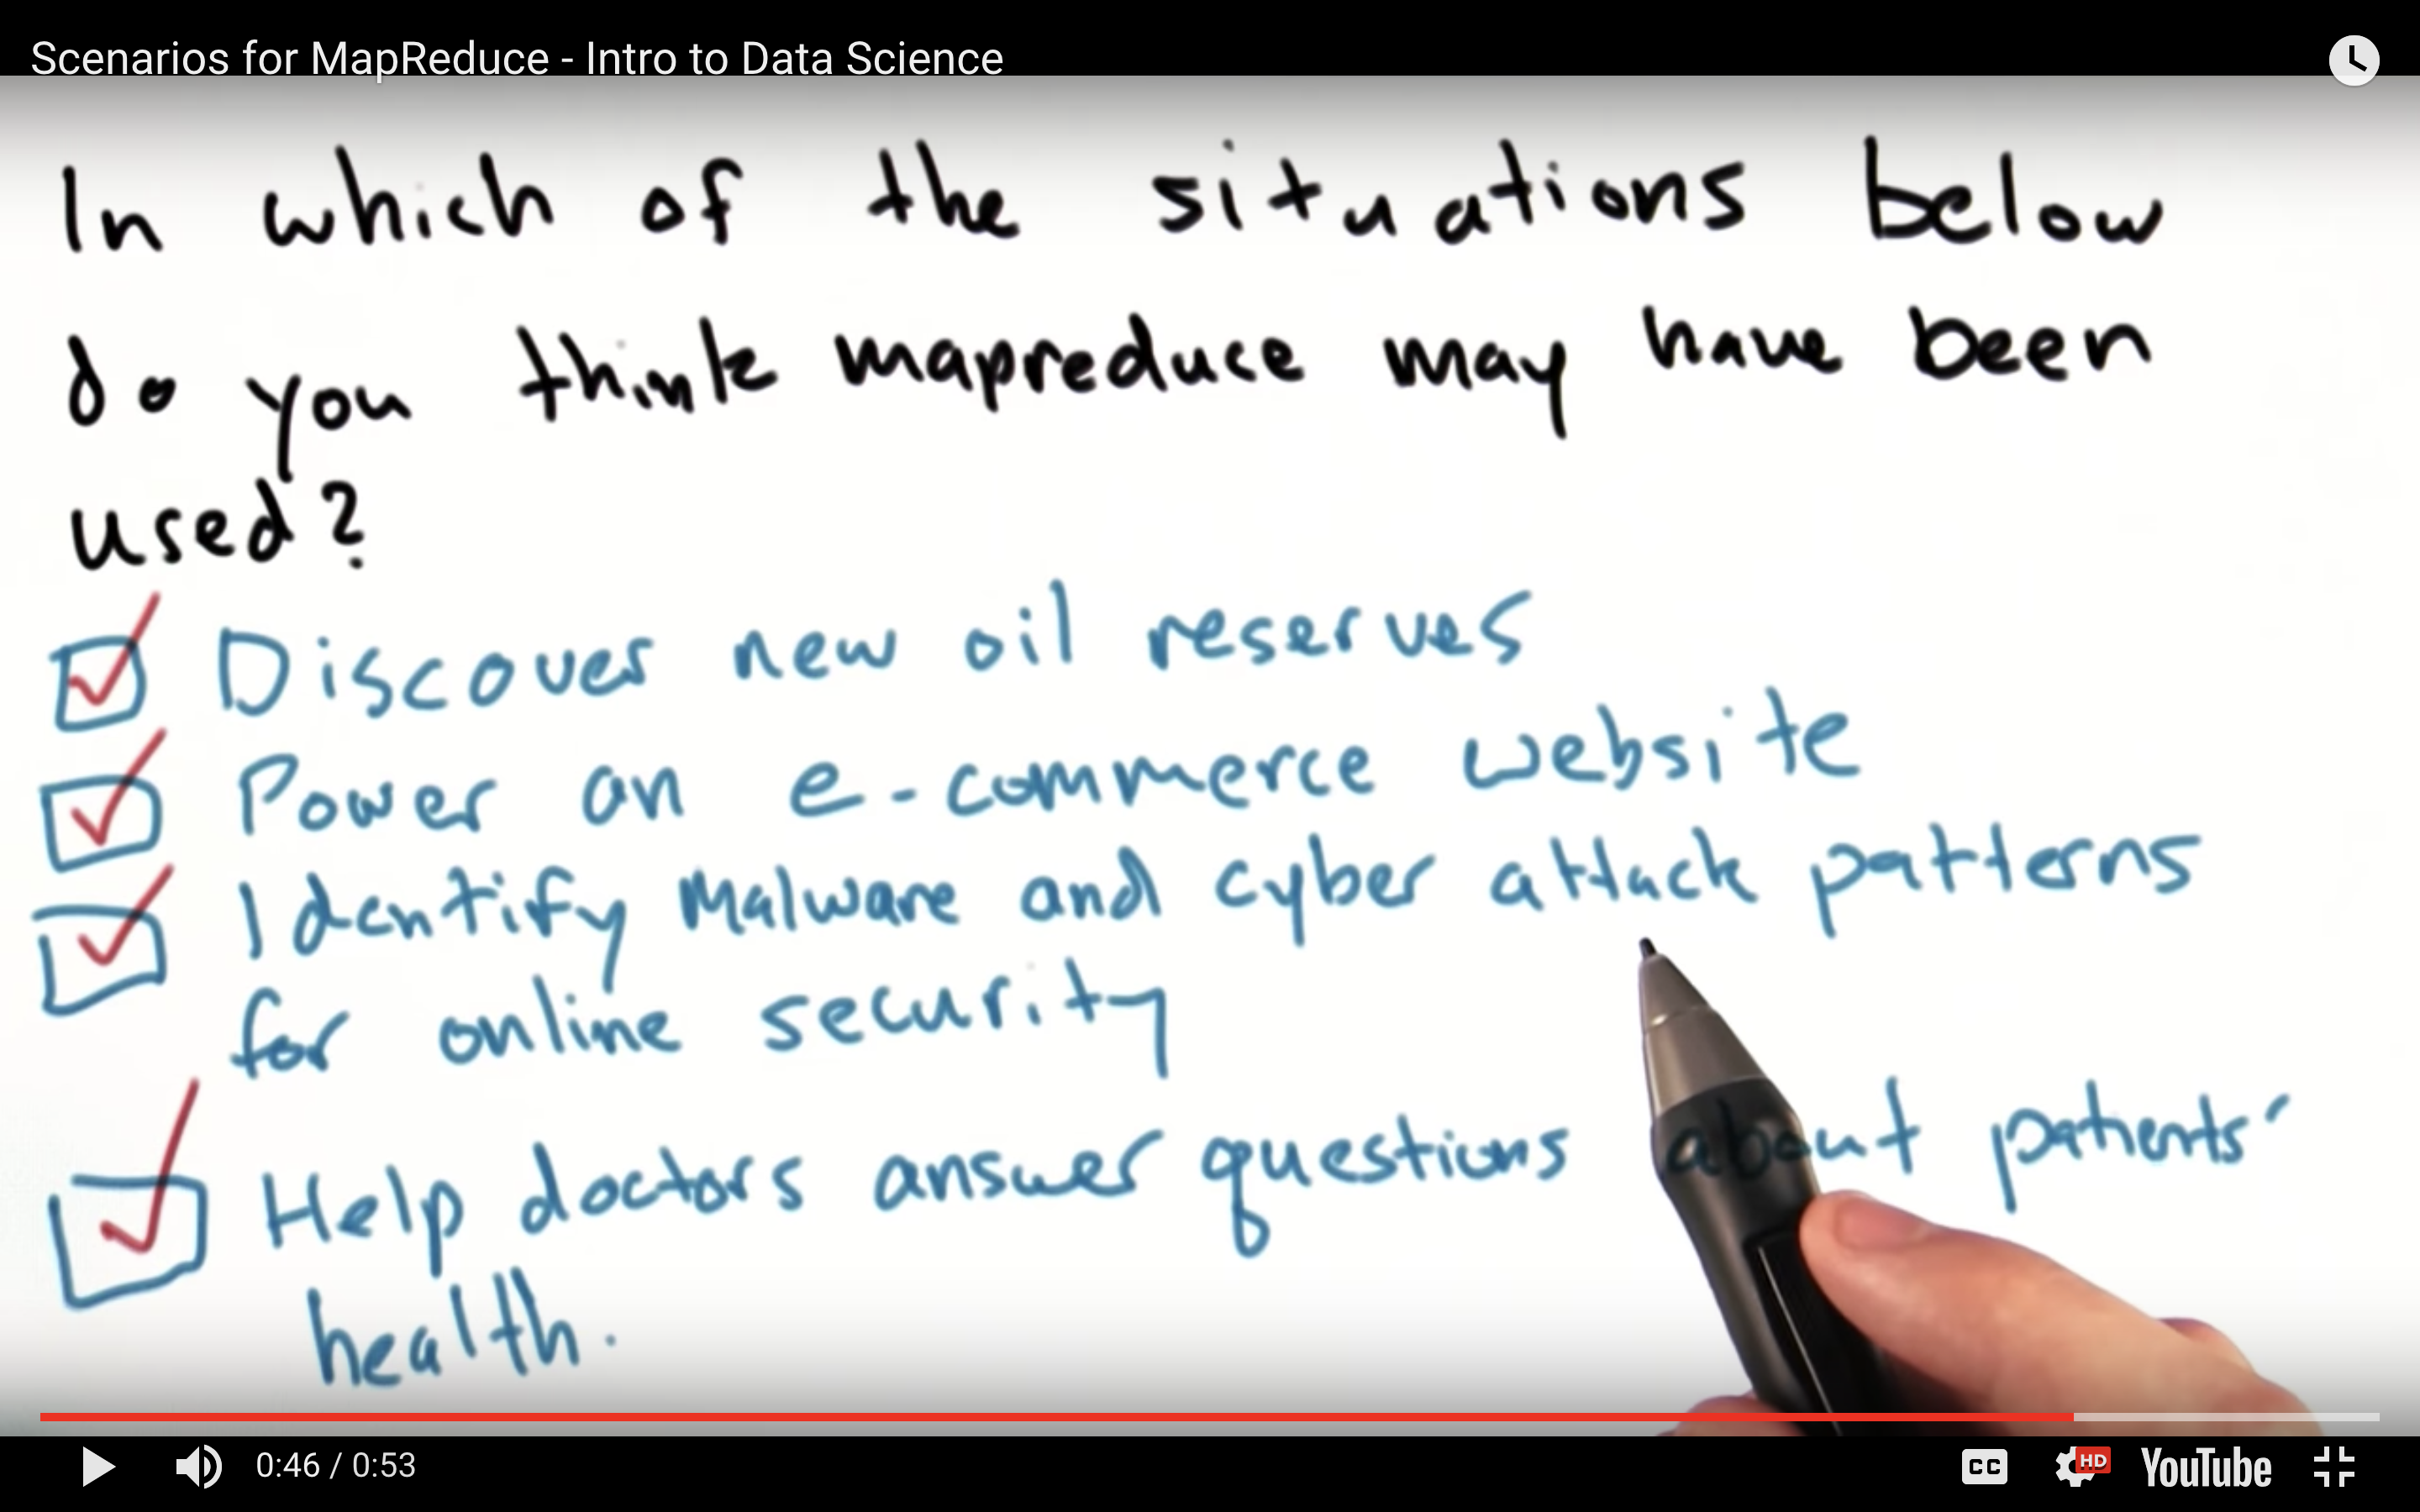 Scenarios for MapReduce - Intro to Data Science
In which of the situations below
do you think mapreduce may have been
used?
Discover new oil reserves
Power an e-commerce website
Identify Malware and cyber attack patterns
for online security
Help doctors answer questions about patients'
health.
0:46 / 0:53
CC
HD
YouTube